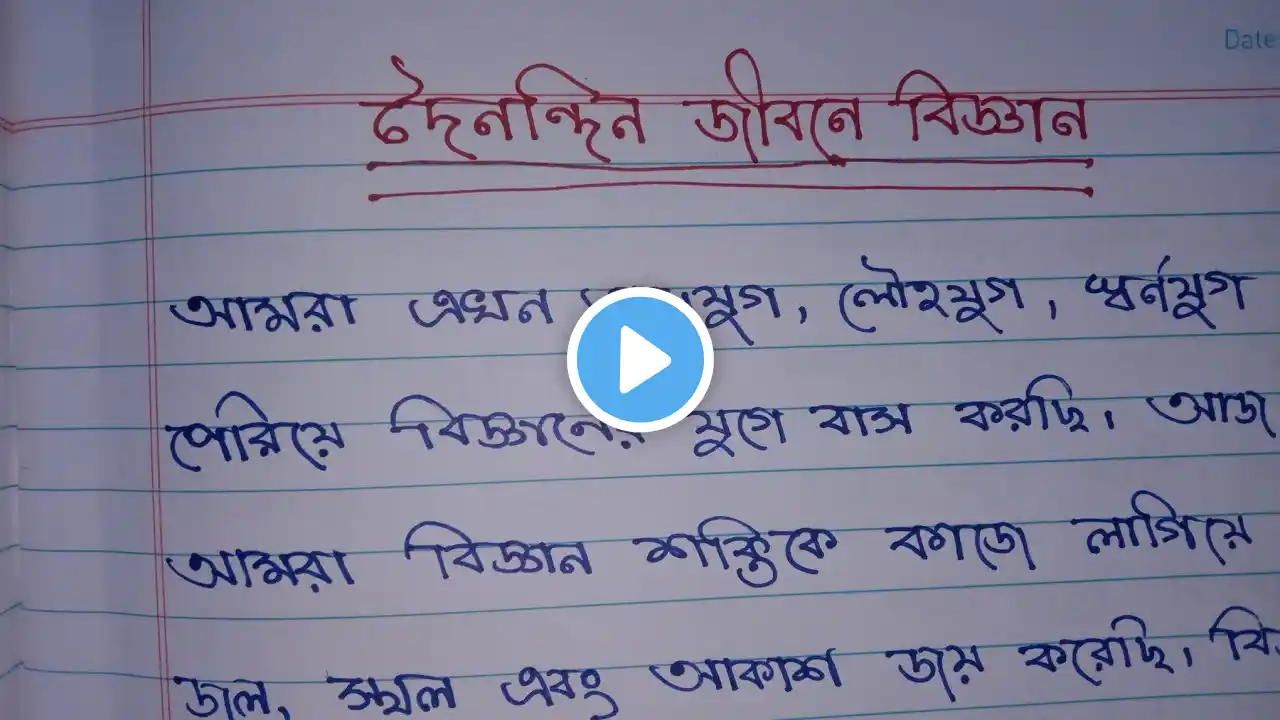 Date
দৈনন্দিন জীবনে বিজ্ঞান
আমরা এখন যুগ, লৌহযুগ, স্বর্নযুগ
পেরিয়ে বিজ্ঞানের যুগে বাস করছি। আজ
আমরা বিজ্ঞান শক্তিকে কাজে লাগিয়ে
জল, স্থল এবং আকাশ জয় করেছি। বি